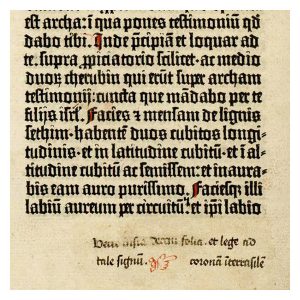 est archa: ī qua pones testimoniū qđ
dabo tibi. Inde p̄cipiā et loquar ad
te. supra ꝓpiciatorio scilicet ac medio
duoꝝ cherubin qui erūt super archam
testimonij: cunda que mādabo per te
filijs isrl̄. Facies ⁊ mensam de lignis
sethim · habentē duos cubitos longi-
tudinis · et in latitudine cubitū · et ī al-
titudine cubitū ac semissem: et inaura-
bis eam auro purissimo. Faciesqꝫ illi
labiū aureum per circuitū: et ip̄i labio
folia. et lege ad
tale signū. coronā īterrasilē